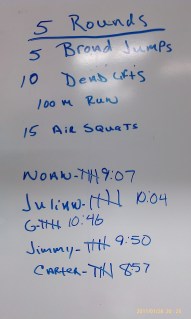 5 Rounds
5 Broad Jumps
10 Dead Lifts
100 m Run
15 Air Squats
Noah- 9:07
Julian- 10:04
G- 10:46
Jimmy- 9:50
Carter- 857